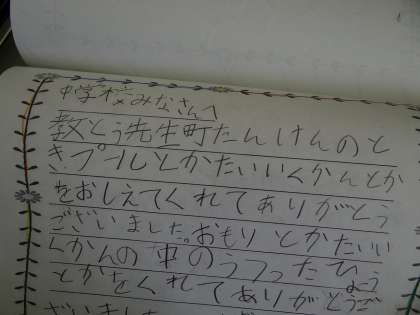 中学校みなさんへ
教とう先生町たんけんのと
き、プールとかたいいくかんとか
をおしえてくれてありがとう
ございました。おもりとかたいい
くかんの中のうつったひょう
とかをくれてありがとうご
ざいました